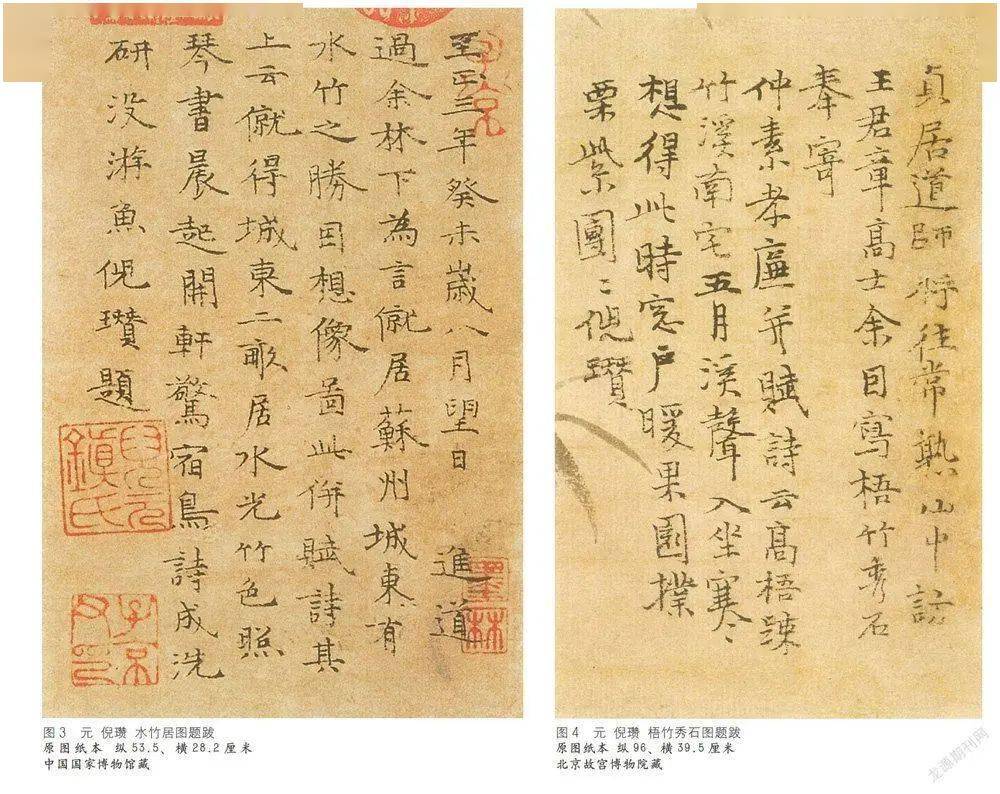 至正三年癸未歲八月望日 進道
過余林下為言僦居蘇州城東有
水竹之勝因想像啚此併賦詩其
上云僦得城東二畝居水光竹色照
琴書晨起開軒驚宿鳥詩成洗
研没游魚倪瓚題
子京
墨林
子京父印
图3 元 倪瓒 水竹居图题跋
原图纸本 纵53.5、横28.2厘米
中国国家博物馆藏
貞居道師將往常熟山中訪
王君章高士余因寫梧竹秀石
奉寄
仲素孝廉并賦詩云高梧疎
竹溪南宅五月溪聲入坐寒
想得此時窓戶暖果園撲
栗紫團〻倪瓚
图4 元 倪瓒 梧竹秀石图题跋
原图纸本 纵96、横39.5厘米
北京故宫博物院藏
龙源期刊网